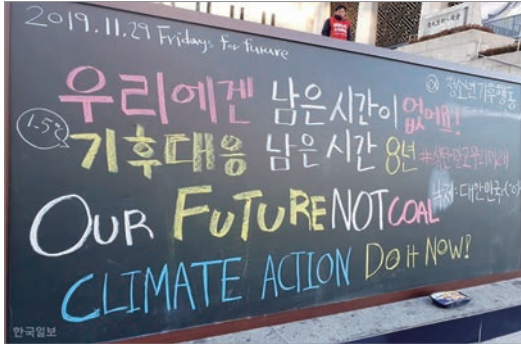 2019.11.29 Fridays for future
청소년기후행동
우리에겐 남은 시간이 없어요!
1.5℃
기후대응 남은 시간 8년
OUR FUTURE NOT COAL
CLIMATE ACTION Do it Now!
한국일보